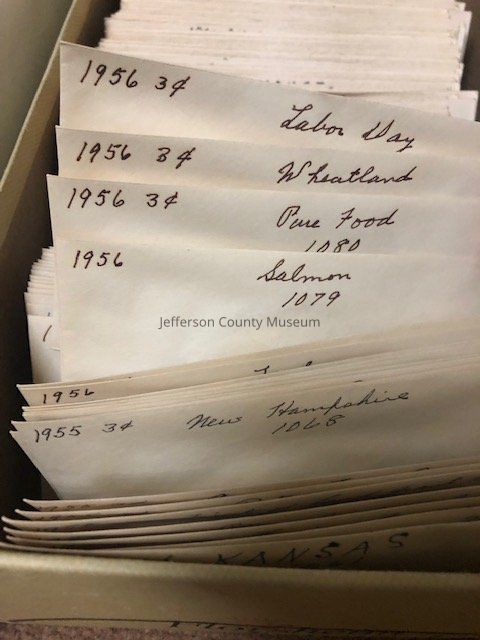 1956 3¢ Labor Day
1956 3¢ Wheatland
1956 3¢ Pure Food
1080
1956 Salmon
1079
Jefferson County Museum
1956
1955 3¢ New Hampshire
1068
KANSAS